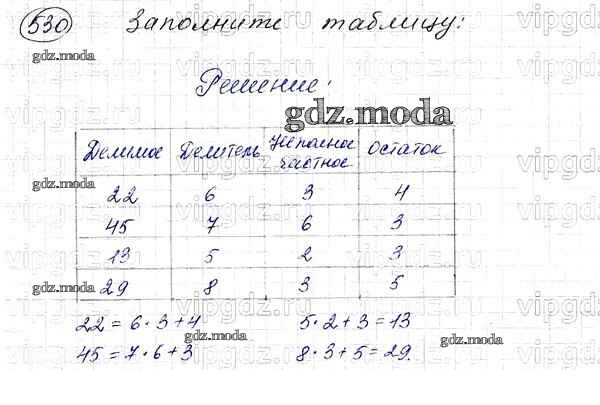 530 Заполните таблицу:
gdz.moda
Решение:
gdz.moda
Делимое Делитель Неполное частное Остаток
22 6 3 4
gdz.moda
45 7 6 3
13 5 2 3
29 8 3 5
gdz.moda
22 = 6 · 3 + 4 5 · 2 + 3 = 13
45 = 7 · 6 + 3 8 · 3 + 5 = 29.
gdz.moda gdz.moda
vipgdz.ru